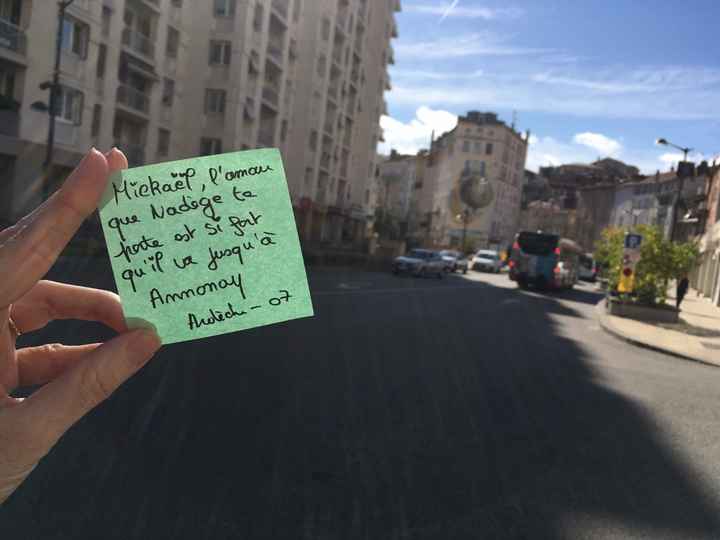 Michaël, l'amour
que Nadège te
porte est si fort
qu'il va jusqu'à
Annonay
Ardèche - 07
P